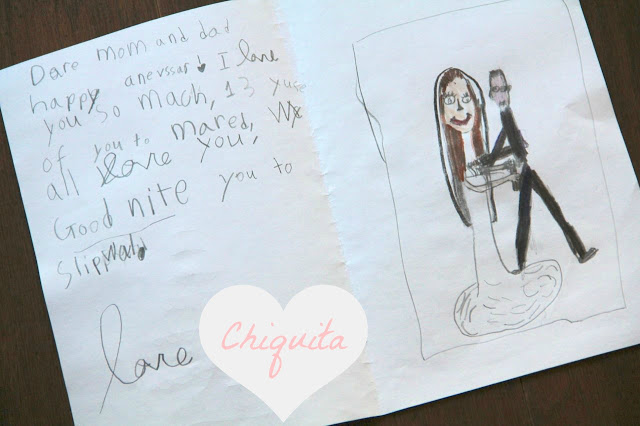 Dare mom and dad
happy anevssar I love
you so mach, 13 yuse
of you to mared, We
all love you,
Good nite you to
slipwald
love
Chiquita